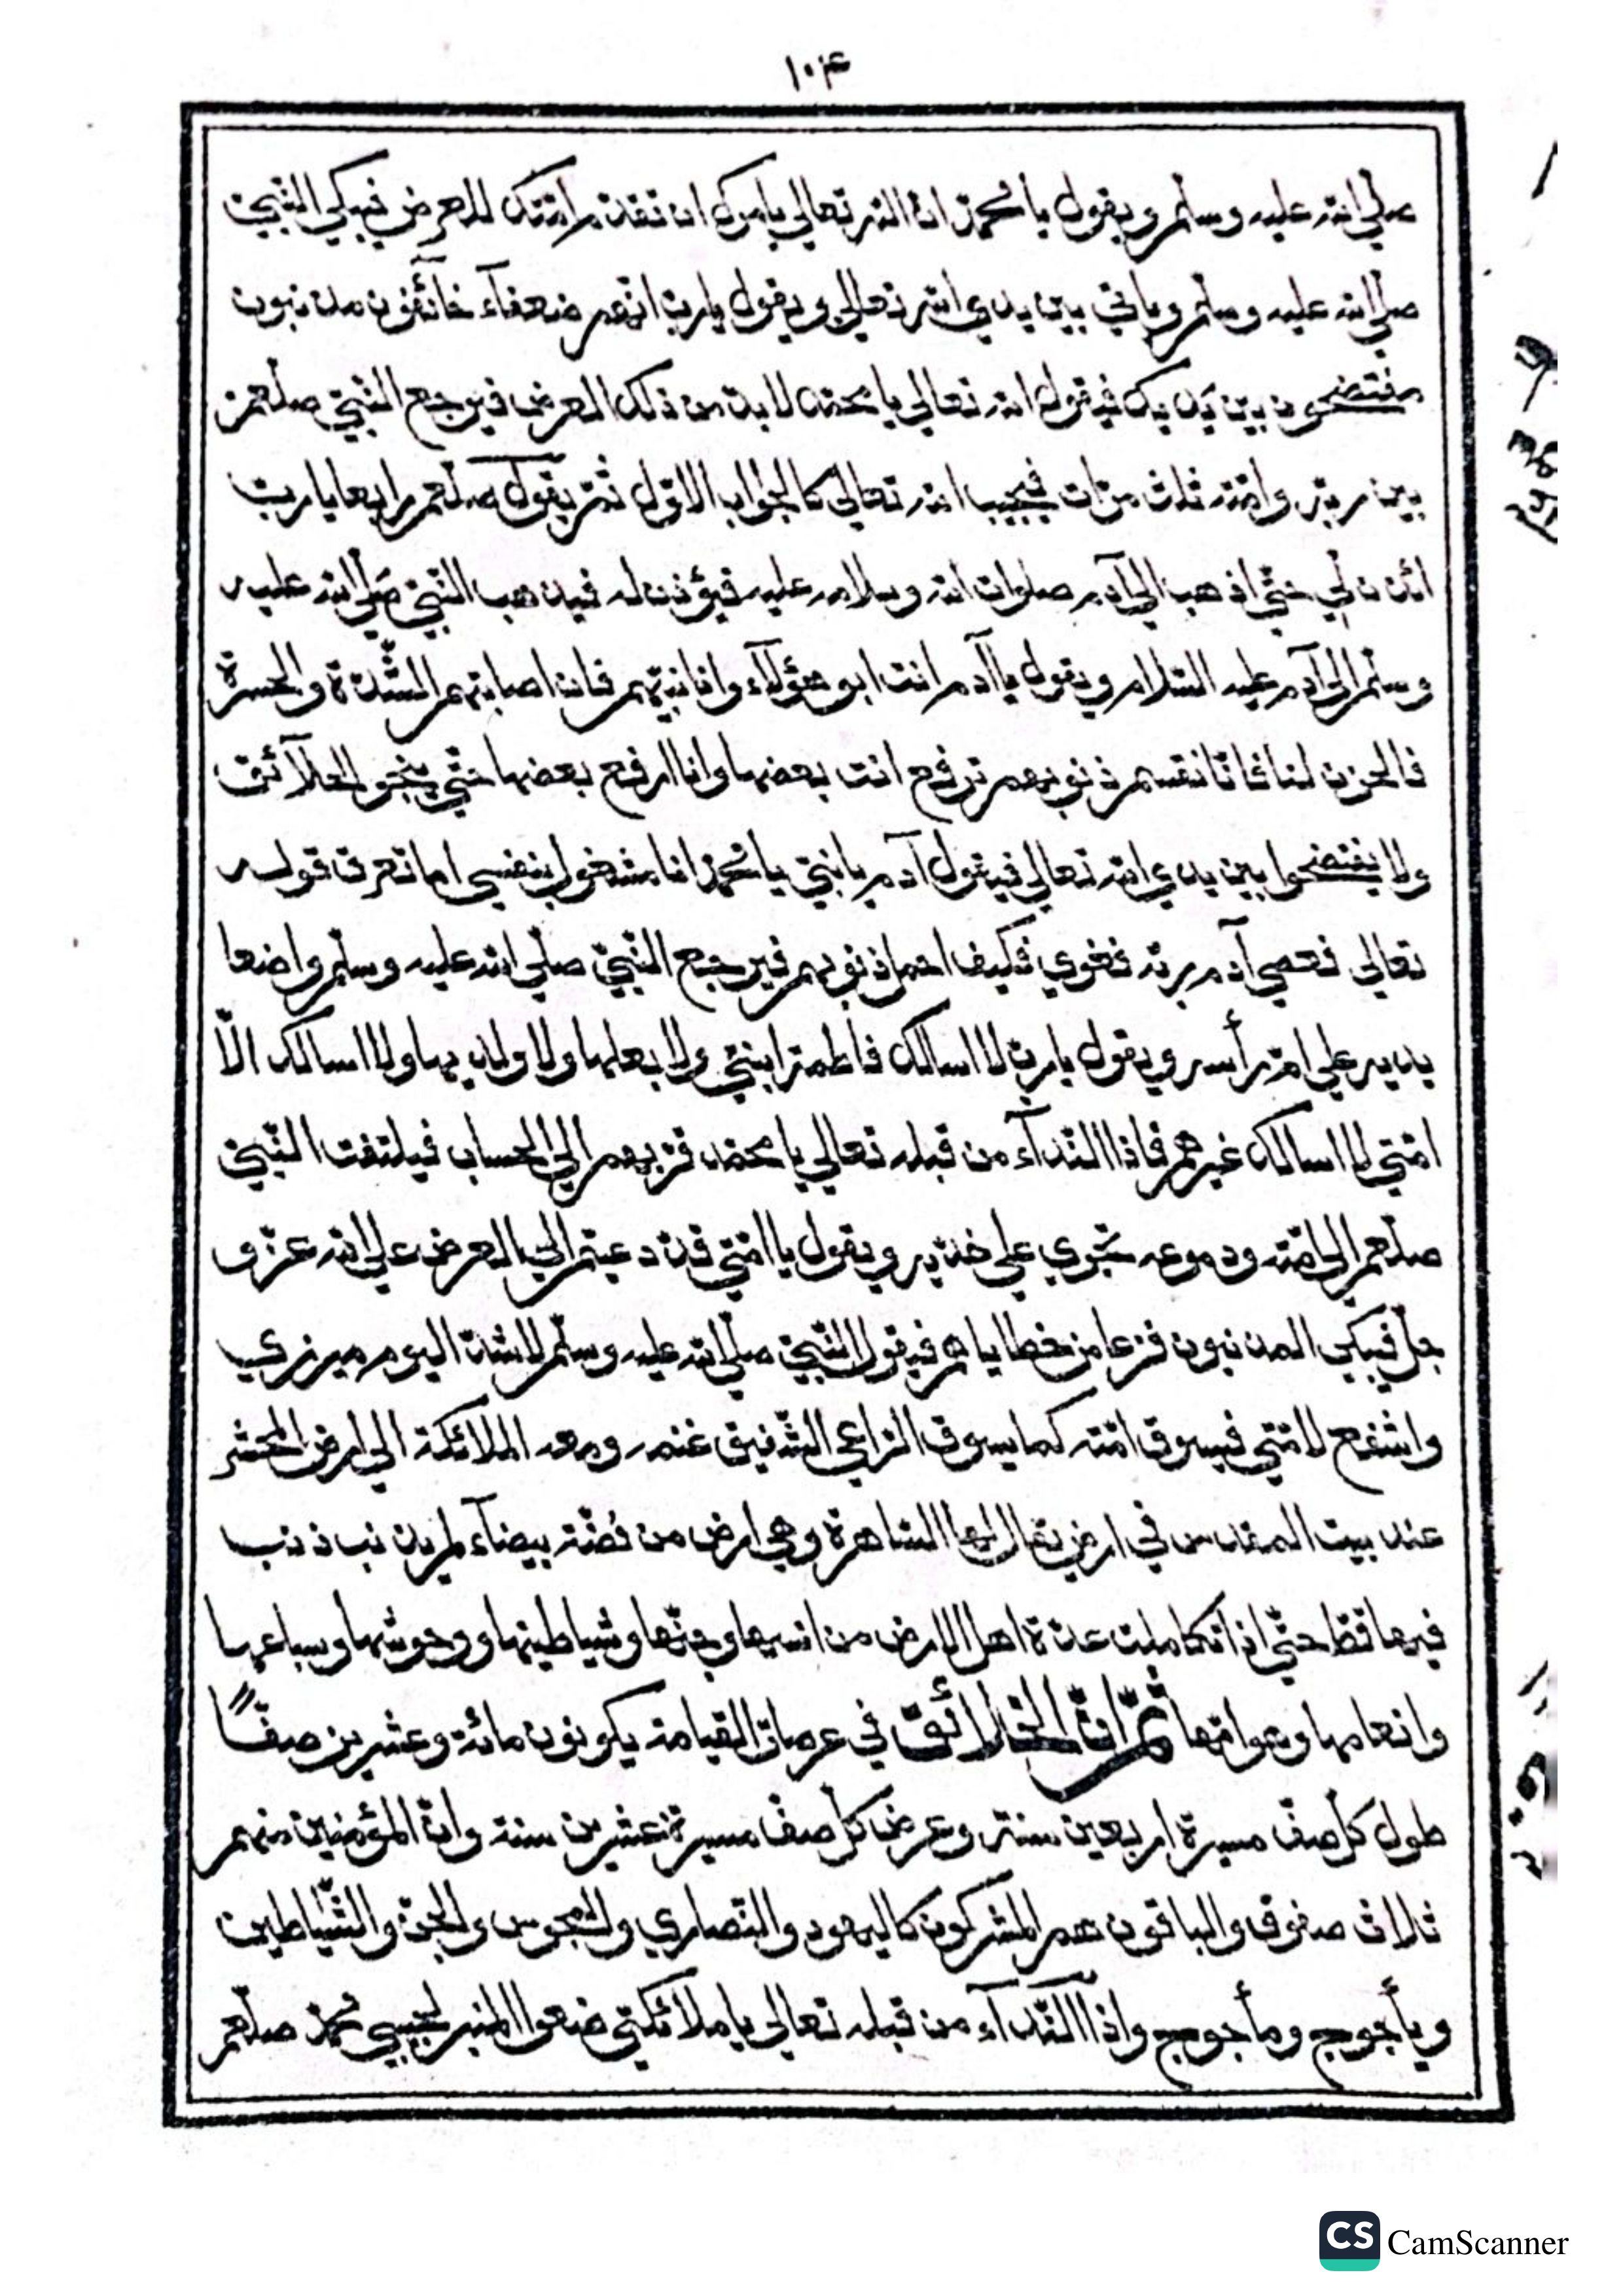 ١٠٤
صلي الله عليه وسلم ويقول يا محمد ان الله تعالي يامرك ان تقدم امتك للعرض فيبكي النبي
صلي الله عليه وسلم وياتي بين يدي الله تعالي ويقول يارب انهم ضعفآء خائفون مذنبون
مفتضحون بين يديك فيقول الله تعالي يا محمد لا بد من ذلك العرض فيرجع النبي صلعم
بين ربه وامته ثلث مرات فيجيب الله تعالي كالجواب الاول ثم يقول صلعم رابعا يارب
ائذن لي حتي اذهب الي آدم صلوات الله وسلامه عليه فيؤذن له فيذهب النبي صلي الله عليه
وسلم الي آدم عليه السلام ويقول يا آدم انت ابو هؤلآء وانا نبيهم فان اصابتهم الشدة والحسرة
فالحزن لنا نقسم ذنوبهم ترفع انت بعضها وانا ارفع بعضها حتي ينجو الخلآئق
ولا يفتضحوا بين يدي الله تعالي فيقول آدم يا نبي يا محمد انا مشغول بنفسي اما تعرف قوله
تعالي فعصي آدم ربه فغوي فكيف احمل ذنوبهم فيرجع النبي صلي الله عليه وسلم واضعا
يديه علي ام رأسه ويقول يارب لا اسالك فاطمة ابنتي ولا بعلها ولا ولديها ولا اسالك الا
امتي لا اسالك غيرهم فاذا النداء من قبله تعالي يا محمد قربهم الي الحساب فيلتفت النبي
صلعم الي امته ودموعه تجري علي خديه ويقول يا امتي قد دعيتم الي العرض علي الله عز و
جل فيبكي المذنبون فزعا من خطاياهم فيقول النبي صلي الله عليه وسلم اليوم
واشفع لامتي فيسوق امته كما يسوق الراعي الشفيق غنمه ومعه الملائكة الي ارض المحشر
عند بيت المقدس في ارض يقال لها الساهرة وهي ارض من فضة بيضآء لم يذنب ذنب
فيها قط حتي اذا تكاملت عدة اهل الارض من انسها وجنها وشياطينها ووحوشها وسباعها
وانعامها وهوامها ثم ان الخلائق في عرصات القيامة يكونون مائة وعشرين صفًّا
طول كل صف مسيرة اربعين سنة وعرض كل صف مسيرة عشرين سنة وان المؤمنين منهم
ثلاث صفوف والباقون هم المشركون كاليهود والنصاري والمجوس والجن والشياطين
ويأجوج ومأجوج واذا النداء من قبله تعالي يا ملائكتي ضعوا المنبر لحبيبي محمد صلعم
CS CamScanner